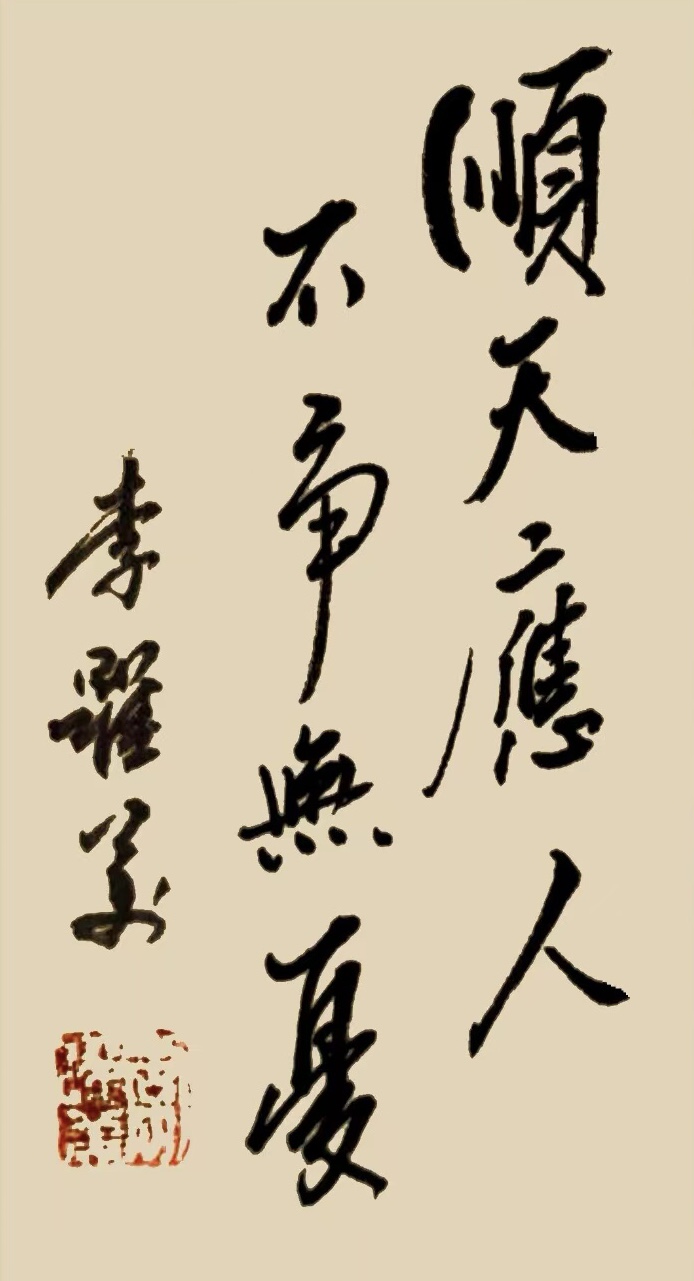 順天應人
不爭無憂
李躍華